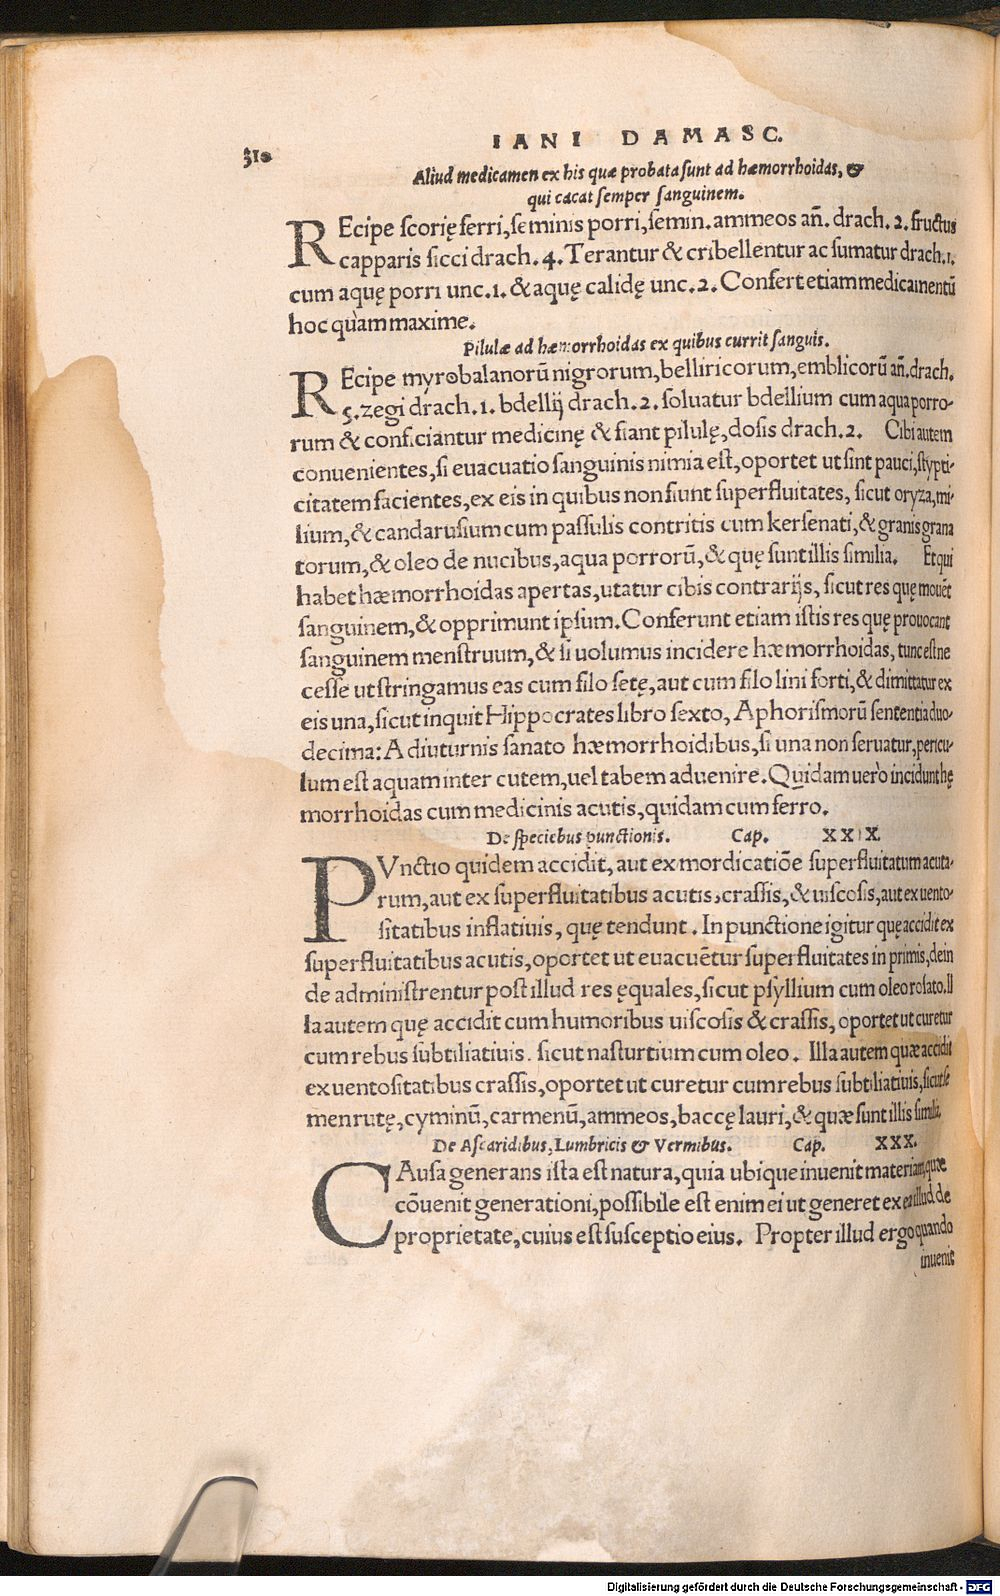 310
IANI DAMASC.
Aliud medicamen ex his quæ probata sunt ad hæmorrhoidas, &
qui cacat semper sanguinem.
REcipe scorię ferri, seminis porri, semin. ammeos añ. drach. 2. fructus
capparis sicci drach. 4. Terantur & cribellentur ac sumatur drach. 1.
cum aquę porri unc. 1. & aquę calidę unc. 2. Confert etiam medicamentũ
hoc quàm maxime.
Pilulæ ad hæmorrhoidas ex quibus currit sanguis.
REcipe myrobalanorũ nigrorum, belliricorum, emblicorũ añ. drach.
5. zegi drach. 1. bdellij drach. 2. soluatur bdellium cum aqua porro-
rum & conficiantur medicinę & fiant pilulę, dosis drach. 2. Cibi autem
conuenientes, si euacuatio sanguinis nimia est, oportet ut sint pauci, stypti-
citatem facientes, ex eis in quibus non fiunt superfluitates, sicut oryza, mi-
lium, & candarusium cum passulis contritis cum kersenati, & granis grana
torum, & oleo de nucibus, aqua porrorũ, & quę sunt illis similia. Et qui
habet hæmorrhoidas apertas, utatur cibis contrarijs, sicut res quę mouẽt
sanguinem, & opprimunt ipsum. Conferunt etiam istis res quę prouocant
sanguinem menstruum, & si uolumus incidere hæmorrhoidas, tunc est ne
cesse ut stringamus eas cum filo setę, aut cum filo lini forti, & dimittatur ex
eis una, sicut inquit Hippocrates libro sexto, Aphorismorũ sententia duo-
decima: A diuturnis sanato hæmorrhoidibus, si una non seruatur, pericu-
lum est aquam inter cutem, uel tabem aduenire. Quidam uerò incidunt hę
morrhoidas cum medicinis acutis, quidam cum ferro.
De speciebus punctionis. Cap. XXIX.
PVnctio quidem accidit, aut ex mordicatiõe superfluitatum acuta-
rum, aut ex superfluitatibus acutis, crassis, & uiscosis, aut ex uento-
sitatibus inflatiuis, quę tendunt. In punctione igitur quę accidit ex
superfluitatibus acutis, oportet ut euacuẽtur superfluitates in primis, dein
de administrentur post illud res ęquales, sicut psyllium cum oleo rosato. Il
la autem quę accidit cum humoribus uiscosis & crassis, oportet ut curetur
cum rebus subtiliatiuis. sicut nasturtium cum oleo. Illa autem quæ accidit
ex uentositatibus crassis, oportet ut curetur cum rebus subtiliatiuis, sicut se
men rutę, cyminũ, carmenũ, ammeos, baccę lauri, & quæ sunt illis similia.
De Ascaridibus, Lumbricis & Vermibus. Cap. XXX.
CAusa generans ista est natura, quia ubique inuenit materiam, quæ
cõuenit generationi, possibile est enim ei ut generet ex ea illud de
proprietate, cuius est susceptio eius. Propter illud ergo quando
inuenit
Digitalisierung gefördert durch die Deutsche Forschungsgemeinschaft - DFG